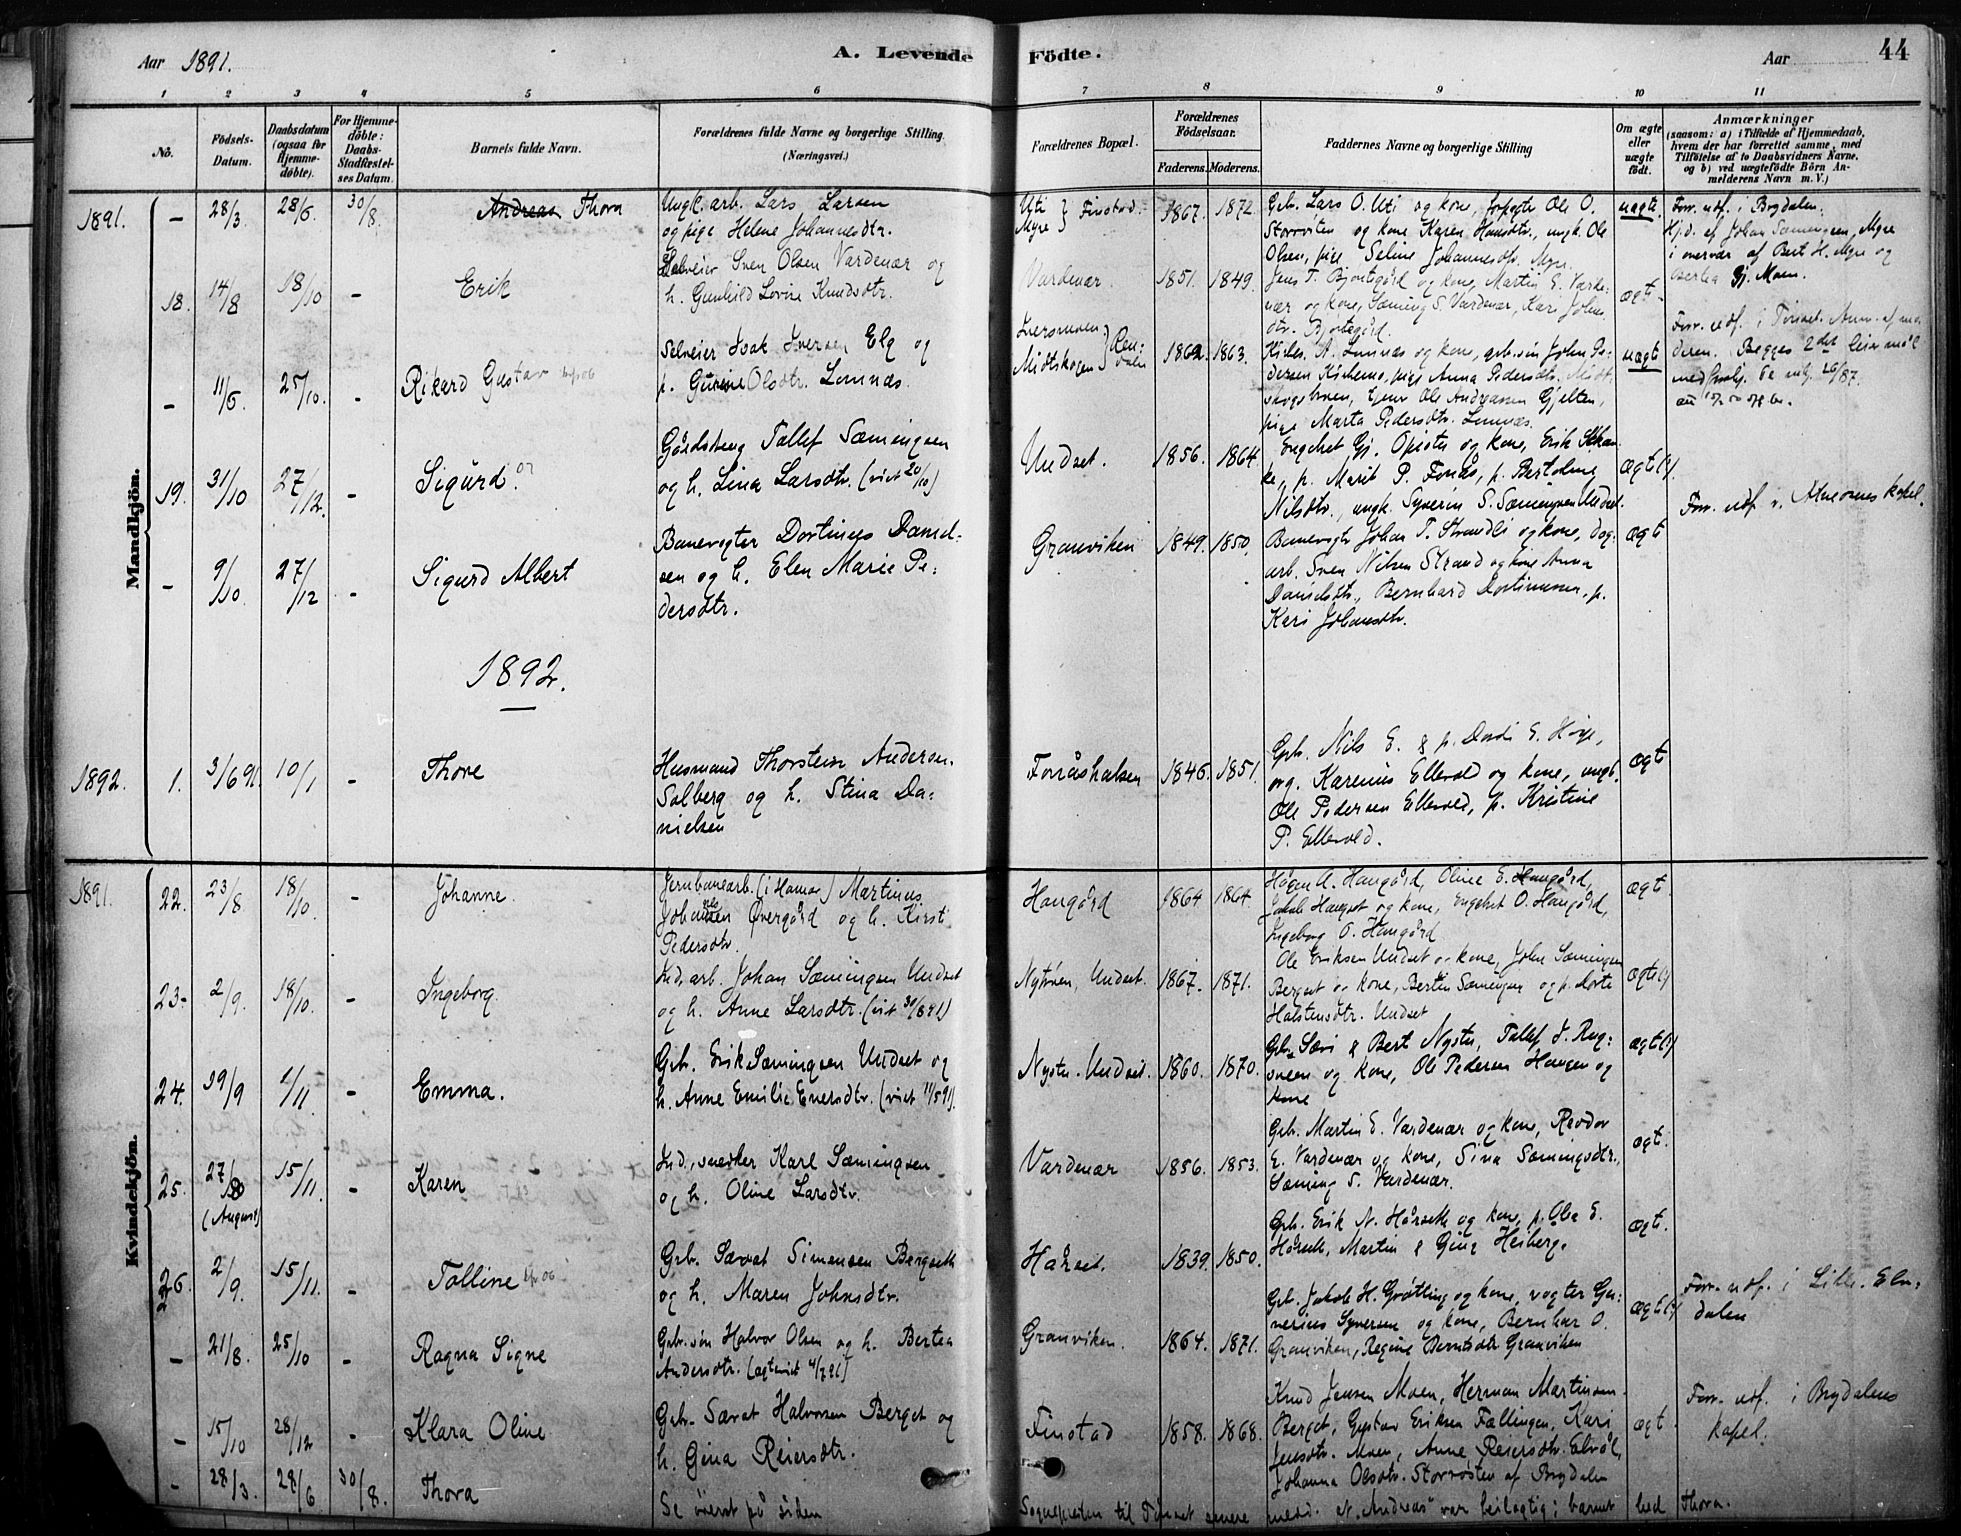 Aar 1891. A. Levende Födte. Aar 44
1 2 3 4 5 6 7 8 9 10 11
No.
Födsels-
Datum.
Daabsdatum
(ogsaa for
Hjemme-
döbte).
For Hjemme-
döbte:
Daabs-
Stadfæstel-
ses Datum.
Barnets fulde Navn.
Forældrenes fulde Navne og borgerlige Stilling.
(Næringsvei.)
Forældrenes Bopæl.
Forældrenes
Födselsaar.
Faderens. Moderens.
Faddernes Navne og borgerlige Stilling
Om ægte
eller
uægte
födt.
Anmærkninger
(saasom: a) i Tilfælde af Hjemmedaab,
hvem der har forrettet samme, med
Tilföielse af to Daabsvidners Navne,
og b) ved uægtefödte Börn An-
melderens Navn m. V.)
Mandkjön.
1891. - 28/3. 28/6. 30/8. Andreas Thora
Ungk. arb. Lars Larsen
og pige Helene Johannesdtr.
Uti } Finstad.
Myre
1867. 1872.
Gbr. Lars O. Uti og kone, Ole O.
Storrøsten og kone Karen Hansdtr., ungk. Ole
Olsen, pige Seline Johannesdtr. Myre.
uægte.
Forr. udf. i Brydalen.
Hj.d. af Johan Sæmingsen, Myre
i overvær af Bert H. Myre og
Bertea Gj. Moen.
18. 14/8 18/10 - Erik
Selveier Sven Olsen Vardenær og
h. Gunhild Lovise Knudsdtr.
Vardenær. 1851. 1849.
Jens T. Bjortegård og kone, Martin E. Varde-
nær og kone, Sæming S. Vardenær, Kari Johns
dtr. Bjortegård.
ægte
- 11/5 25/10. - Rikard Gustav
Selveier Isak Iversen Elg og
p. Gurine Olsdtr. Lomnæs.
Midtskogen } Ren-
dalen
1862. 1863.
A. Lomnæs og kone, John Pe-
dersen pige Anna Pedersdtr. Midt-
skogsbraen, tjener Ole Andreassen Gjelten,
pige Marta Pedersdtr. Lomnæs.
uægte
Forr. udf. i Tinset. Anm. af mo
deren. Begges 2det leiermål
19. 31/10 27/12. - Sigurd.
Gårdsbrug Tallef Sæmingsen
og h. Lina Larsdtr. (viet 20/10)
Undset. 1856. 1864.
Engebret Gj. Opistu og kone, Erik
p. Marit P. Fonås, p. Bertoline
Nilsdtr., ungk. Syverin S. Sæmingsen Undset.
ægte
Forr. udf. i Atneosens kapel.
- 9/10. 27/12 - Sigurd Albert
Banevogter Dortinus Daniel-
sen og h. Elen Marie Pe-
dersdtr.
Granviken 1849. 1850.
Banevogter Johan T. Strandli og kone, dag-
arb. Sven Nilsen Strand og kone Anna
Danielsdtr., Bernhard Dortinusen, p.
Kari Johansdtr.
ægte
1892.
1892. 1. 3/6 91. 10/1 - Thore
Husmand Thorstein Andersen
Solberg og h. Stina Da-
nielsen
Fonåshalsen 1846. 1851.
Gbr. Nils E. & p. Dordi E. Høye,
Karenius Ellevold og kone, ungk.
Ole Pedersen Ellevold, p. Kristine
P. Ellevold.
ægte
Kvindekjön.
1891. 22. 23/8 18/10. - Johanne.
Jernbanearb. (i Hamar) Martinus
Johansen Øvergård og h. Kirsti
Pedersdtr.
Haugård 1864 1864.
Høgen A. Haugård, Oline E. Haugård,
Jakob Hauget og kone, Engebret O. Haugård,
Ingeborg O. Haugård
ægte.
23- 2/9. 18/10. - Ingeborg.
Ind. arb. Johan Sæmingsen Undset
og h. Anne Larsdtr. (viet 30/8 91)
Nytrøen, Undset. 1867. 1871.
Ole Eriksen Undset og kone, John Sæmingsen
Berget og kone, Bertin Sæmingsen og p. Dorte
Halstensdtr. Undset
ægte
24. 19/9 1/11. - Emma.
Gbr. Erik Sæmingsen Undset og
h. Anne Emilie Enersdtr. (viet 11/5 91).
Nystu. Undset. 1860. 1870.
Gbr. & Bert Nystu, Tallef J. Rug-
sveen og kone, Ole Pedersen Haugen og
kone
ægte
25. 27/8 15/11. - Karen
(August)
Ind., snedker Karl Sæmingsen
og h. Oline Larsdtr.
Vardenær 1856. 1853.
Gbr. Martin E. Vardenær og kone, Reodor
E. Vardenær og kone, Sina Sæmingsdtr.,
Sæming S. Vardenær.
ægte.
26. 2/9. 15/11. - Talline
Gbr. Savat Simensen Bergseth
og h. Maren Johnsdtr.
Harset. 1839. 1850.
Gbr. Erik N. Hårseth og kone, p. Olea E.
Hårseth, Martin & Gina Heiberg.
ægte.
- 21/8. 25/10 - Ragna Signe
Gbr. søn Halvor Olsen og h. Bertea
Andersdtr. (ægteviet 4/7 91)
Granviken. 1864. 1871.
Gbr. Jakob H. Grøtting og kone, vogter Gu-
nerius Syversen og kone, Bernhar O.
Granviken, Regine Berntsdtr. Granviken
ægte
Forr. udf. i Lille-Elv-
dalen
- 15/10 28/12 - Klara Oline
Gbr. Savat Halvorsen Berget og
h. Gina Reiersdtr.
Finstad 1858. 1868.
Knud Jensen Moen, Herman Martinsen
Berget, Gustav Eriksen Fællingen, Kari
Jensdtr. Moen, Anne Reiersdtr. Elvål,
Johanna Olsdtr. Storrøsten af Brydalen
ægte
Forr. udf. i Brydalens
kapel.
- 28/3. 28/6 30/8. Thora
Se øverst på siden
Sognepresten til Tinset senere medd. at „Andreas“ var feilagtig; barnet hed Thora.